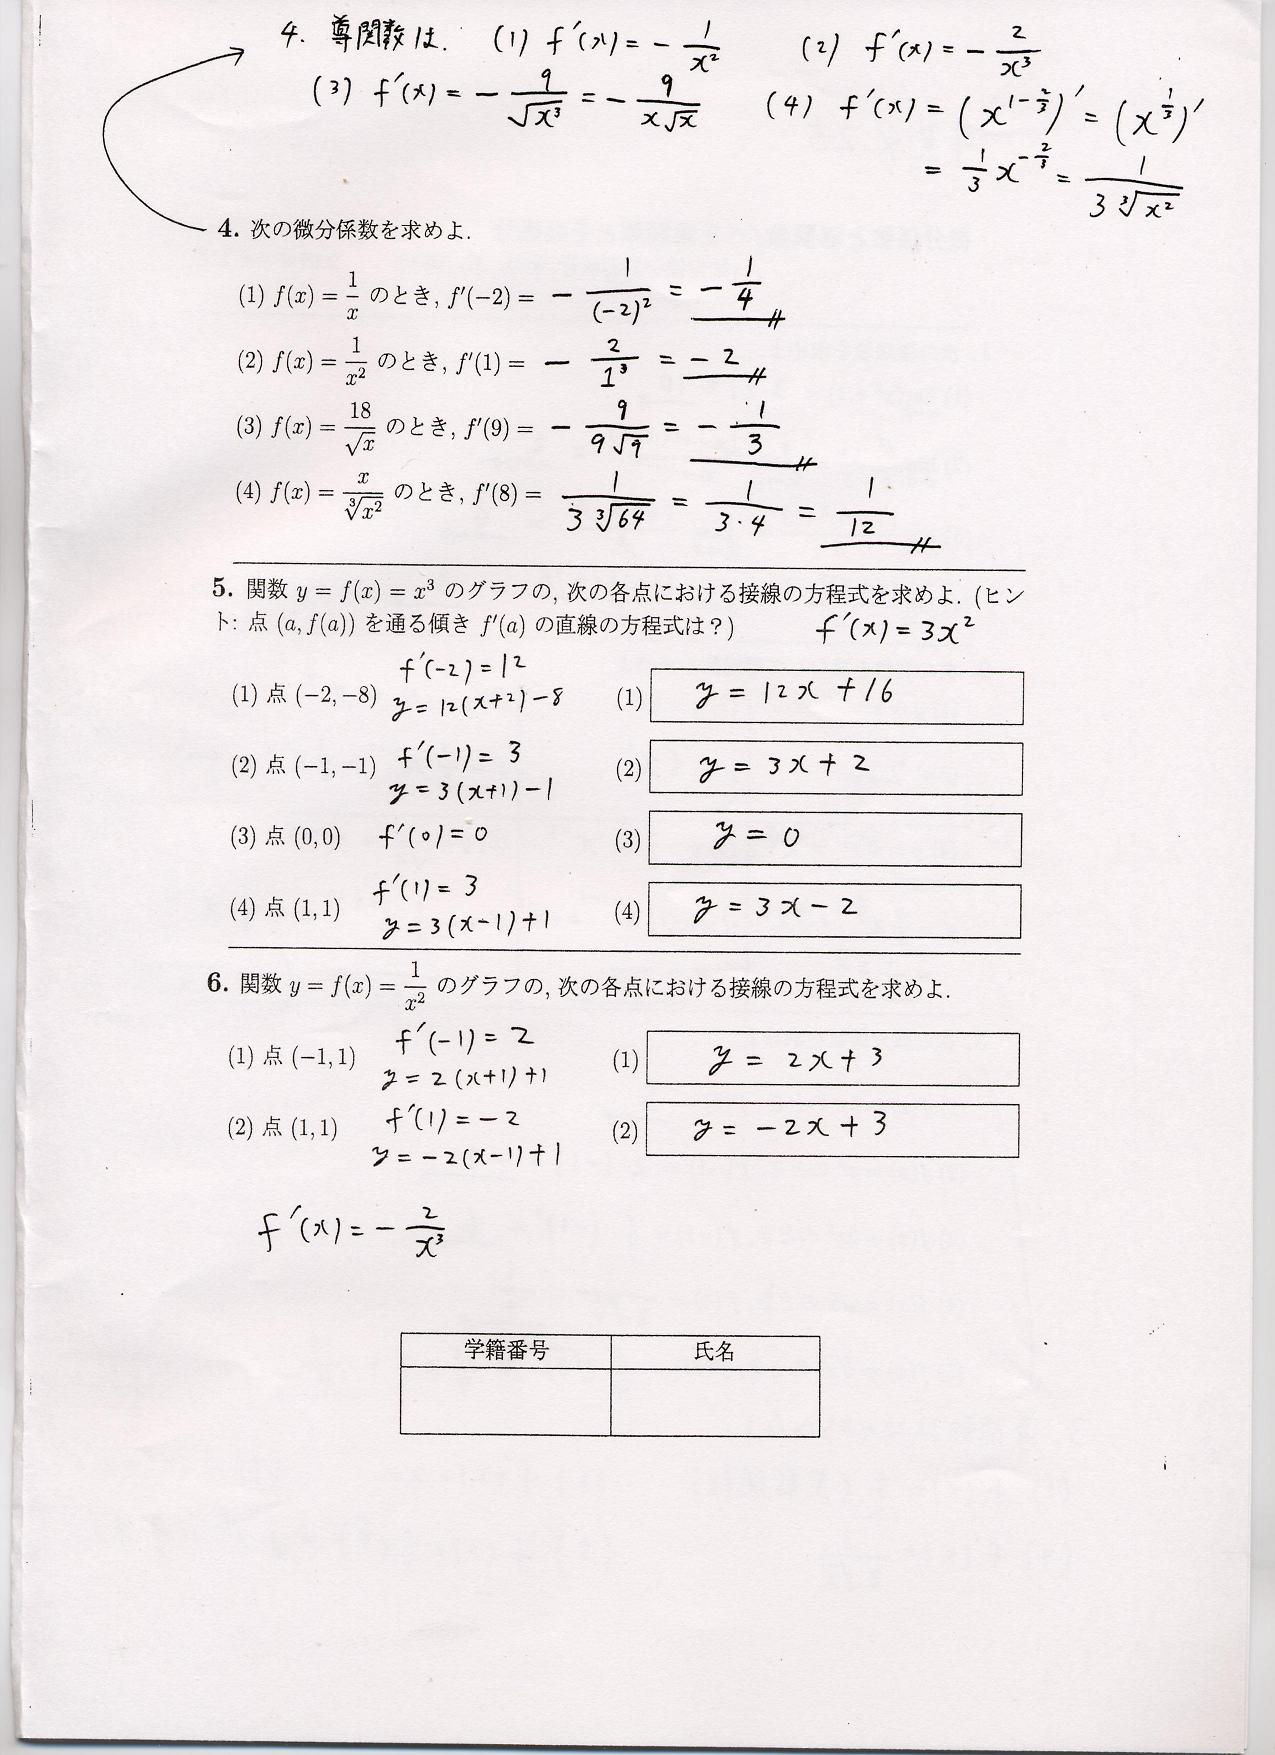 4. 導関数は. (1) f'(x) = - 1/x² (2) f'(x) = - 2/x³
(3) f'(x) = - 9/√x³ = - 9/x√x (4) f'(x) = (x^{1-2/3})' = (x^{1/3})'
= 1/3 x^{-2/3} = 1/3∛x²
4. 次の微分係数を求めよ.
(1) f(x) = 1/x のとき, f'(−2) = - 1/(-2)² = - 1/4
(2) f(x) = 1/x² のとき, f'(1) = - 2/1³ = - 2
(3) f(x) = 18/√x のとき, f'(9) = - 9/9√9 = - 1/3
(4) f(x) = x/∛x² のとき, f'(8) = 1/3∛64 = 1/3·4 = 1/12
5. 関数 y = f(x) = x³ のグラフの, 次の各点における接線の方程式を求めよ. (ヒン
ト: 点 (a, f(a)) を通る傾き f'(a) の直線の方程式は？) f'(x) = 3x²
f'(-2) = 12
(1) 点 (−2, −8) y = 12(x+2) - 8 (1) y = 12x + 16
(2) 点 (−1, −1) f'(-1) = 3 (2) y = 3x + 2
y = 3(x+1) - 1
(3) 点 (0, 0) f'(0) = 0 (3) y = 0
f'(1) = 3
(4) 点 (1, 1) y = 3(x-1) + 1 (4) y = 3x - 2
6. 関数 y = f(x) = 1/x² のグラフの, 次の各点における接線の方程式を求めよ.
f'(-1) = 2
(1) 点 (−1, 1) y = 2(x+1) + 1 (1) y = 2x + 3
(2) 点 (1, 1) f'(1) = -2 (2) y = -2x + 3
y = -2(x-1) + 1
f'(x) = - 2/x³
学籍番号 氏名